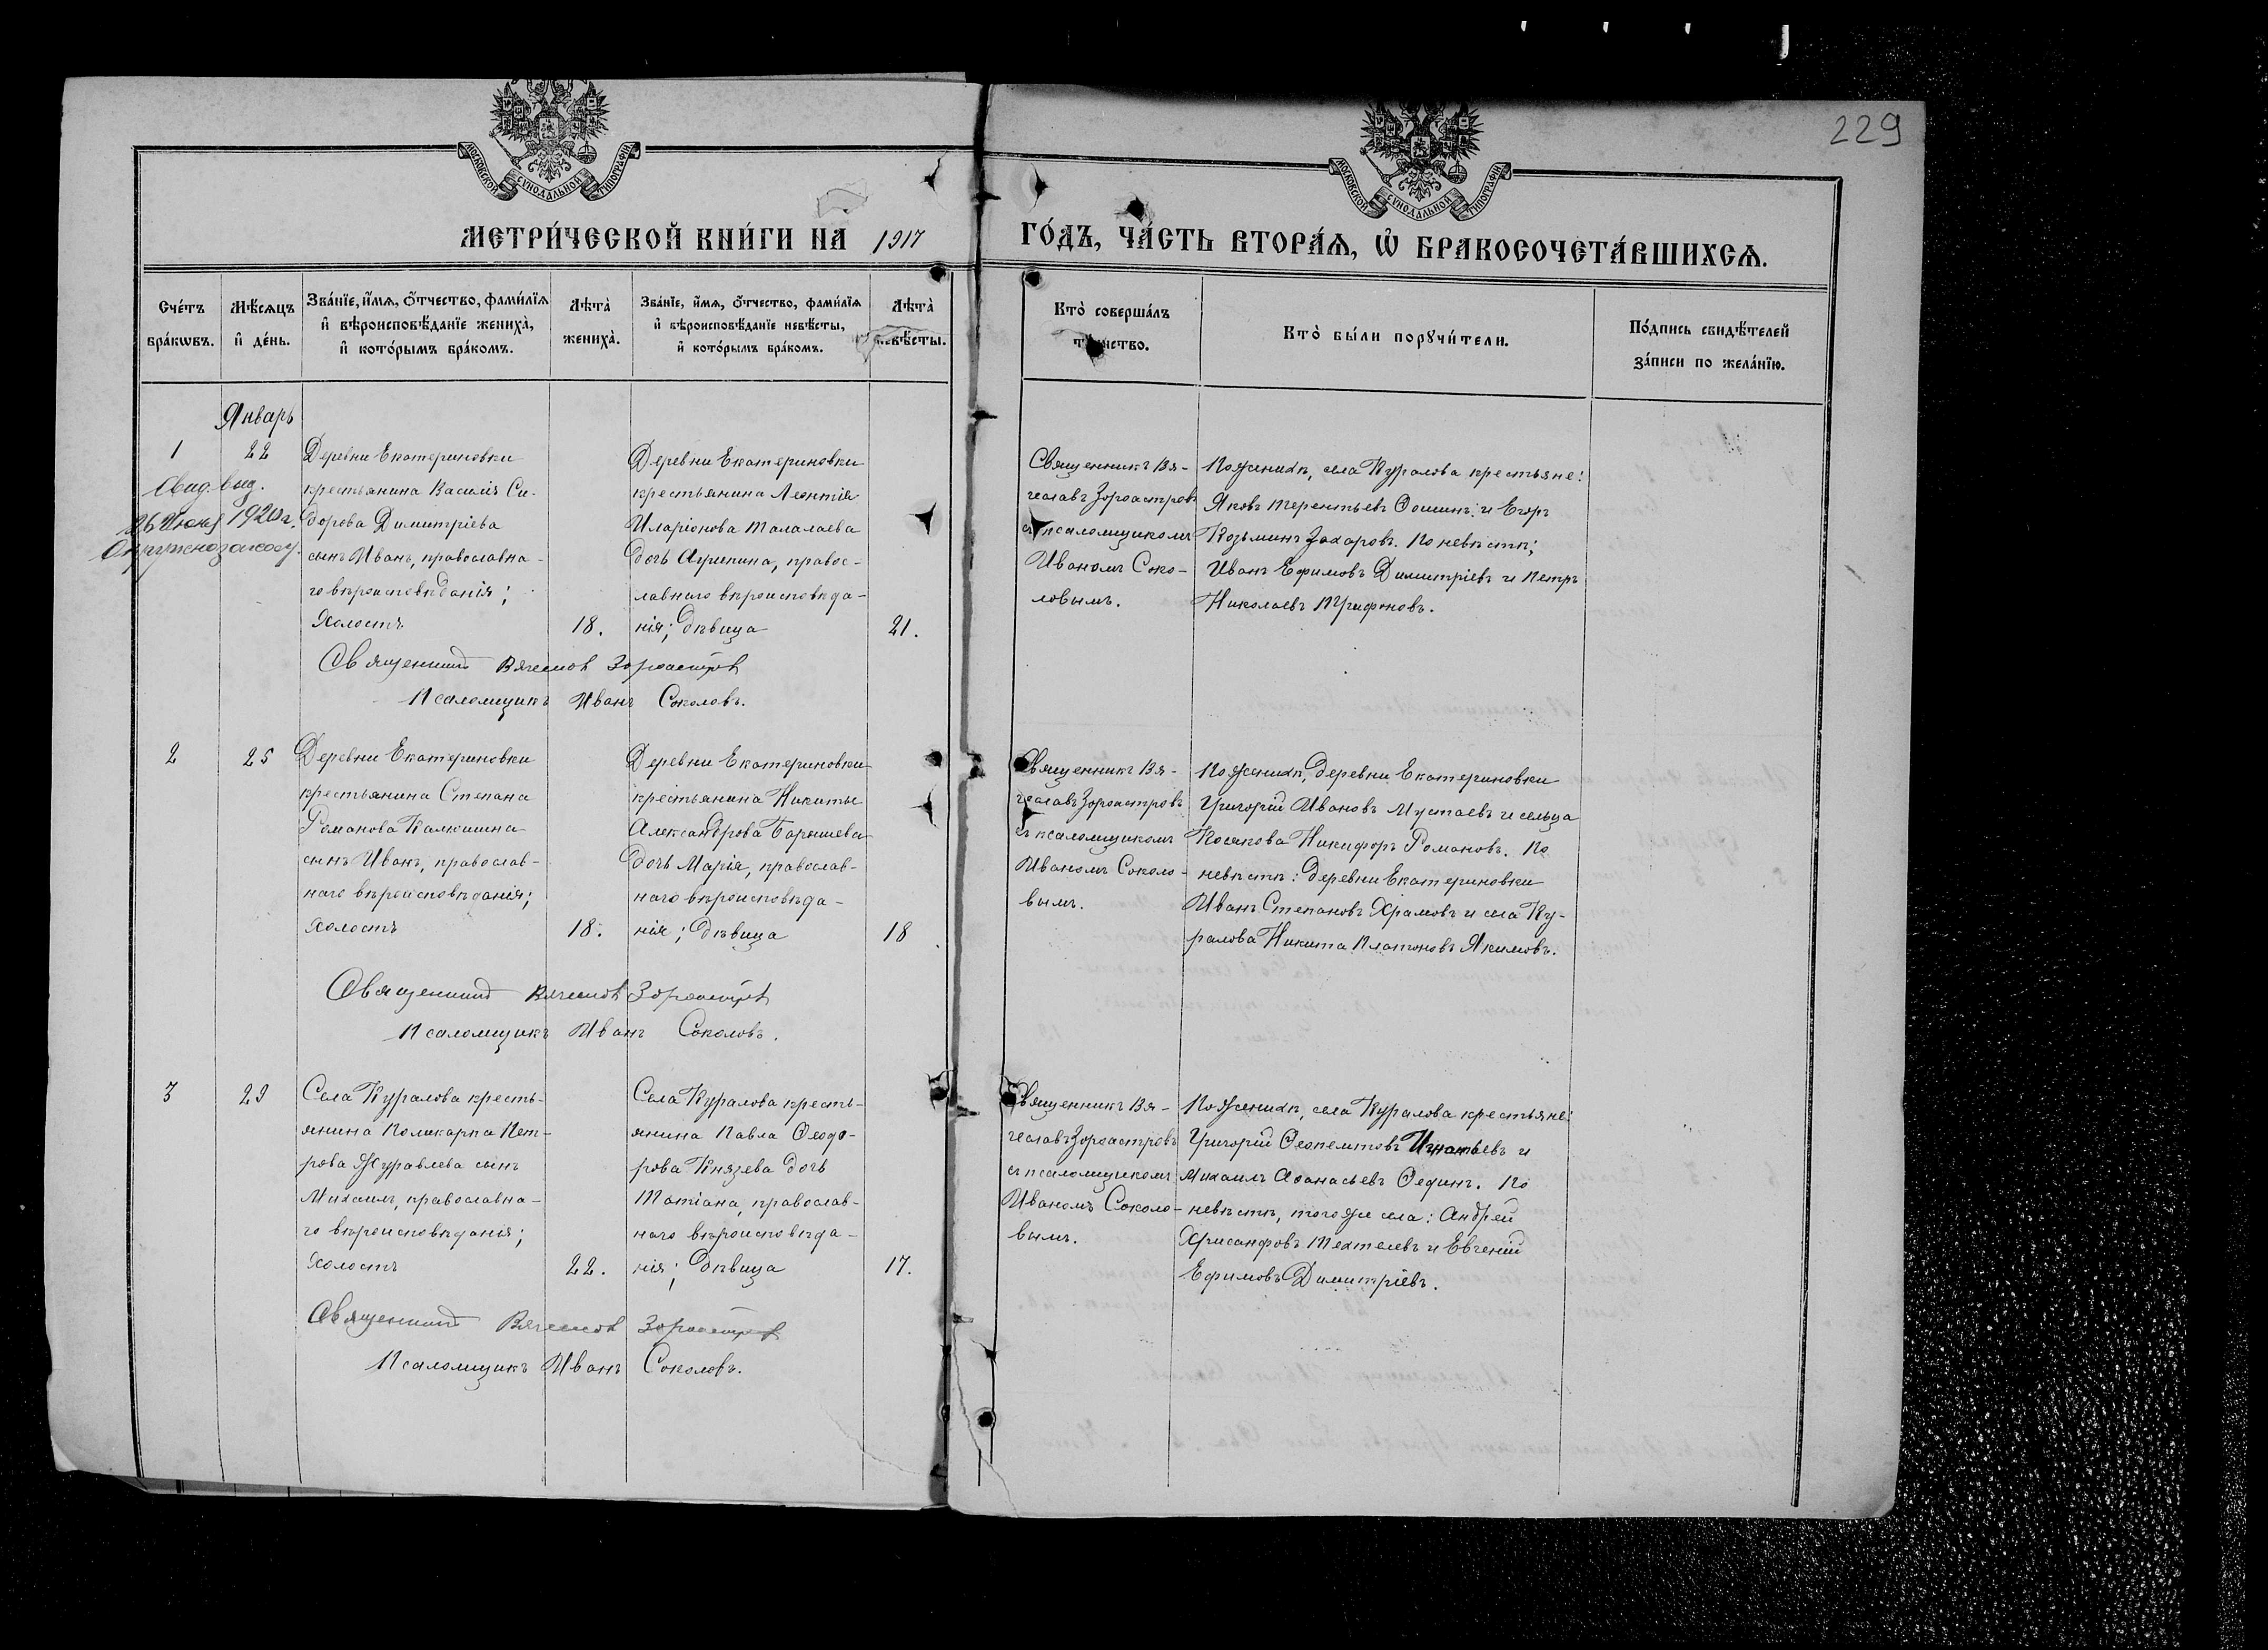 229
МОСКОВСКОЙ СУНОДАЛЬНОЙ ТИПОГРАФІИ
МОСКОВСКОЙ СУНОДАЛЬНОЙ ТИПОГРАФІИ
МЕТРИ́ЧЕСКОЙ КНИ́ГИ НА 1917
ГО́ДЪ, ЧА́СТЬ ВТОРА́Ѧ, Ѡ҆ БРАКОСОЧЕТА́ВШИХСѦ.
Сче́тъ бра́кѡвъ.
Мѣ́сѧцъ и҆ де́нь.
Зва́нїе, и҆́мѧ, ѻ҆́тчество, фами́лїѧ
и҆ вѣроисповѣ́данїе жениха̀,
и҆ кото́рымъ бра́комъ.
Лѣта̀ жениха̀.
Зва́нїе, и҆́мѧ, ѻ҆́тчество, фами́лїѧ
и҆ вѣроисповѣ́данїе невѣ́сты,
и҆ кото́рымъ бра́комъ.
Лѣта̀ невѣ́сты.
Кто̀ соверша́лъ
та́инство.
Кто̀ бы́ли порꙋчи́тели.
По́дпись свидѣ́телей
за́писи по жела́нїю.
Январь
1
22
Свид. выд.
26 Июня 1920 г.
Деревни Екатериновки
крестьянина Василія Си-
дорова Димитріева
сынъ Иванъ, православна-
го вѣроисповѣданія;
Холостъ
18.
Деревни Екатериновки
крестьянина Леонтія
Иларіонова Талалаева
дочь Агрипина, правос-
лавнаго вѣроисповѣда-
нія; дѣвица
21.
Священникъ Вя-
чеславъ Зороастровъ
съ псаломщикомъ
Иваномъ Соко-
ловымъ.
По женихѣ, села Куралова крестьяне:
Яковъ Терентьевъ Ѳошинъ и Егоръ
Козьминъ Захаровъ. По невѣстѣ;
Иванъ Ефимовъ Димитріевъ и Петръ
Николаевъ Трифоновъ.
Священникъ Вячеславъ Зороастровъ
Псаломщикъ Иванъ Соколовъ.
2
25
Деревни Екатериновки
крестьянина Степана
Романова Калюшина
сынъ Иванъ, православ-
наго вѣроисповѣданія;
Холостъ
18.
Деревни Екатериновки
крестьянина Никиты
Александрова Барышева
дочь Марія, православ-
наго вѣроисповѣда-
нія; дѣвица
18
Священникъ Вя-
чеславъ Зороастровъ
съ псаломщикомъ
Иваномъ Соколо-
вымъ.
По женихѣ, деревни Екатериновки
Григорій Ивановъ Мустаевъ и сельца
Косякова Никифоръ Романовъ. По
невѣстѣ: деревни Екатериновки
Иванъ Степановъ Храмовъ и села Ку-
ралова Никита Платоновъ Якимовъ.
Священникъ Вячеславъ Зороастровъ
Псаломщикъ Иванъ Соколовъ.
3
29
Села Куралова кресть-
янина Поликарпа Пет-
рова Журавлева сынъ
Михаилъ, православна-
го вѣроисповѣданія;
Холостъ
22.
Села Куралова кресть-
янина Павла Ѳеодо-
рова Князева дочь
Татіана, православ-
наго вѣроисповѣда-
нія; дѣвица
17.
Священникъ Вя-
чеславъ Зороастровъ
съ псаломщикомъ
Иваномъ Соколо-
вымъ.
По женихѣ, села Куралова крестьяне:
Григорій Ѳеопемтовъ Игнатьевъ и
Михаилъ Аѳанасьевъ Ѳединъ. По
невѣстѣ, того же села: Андрей
Хрисанфовъ Техтелевъ и Евгеній
Ефимовъ Димитріевъ.
Священникъ Вячеславъ Зороастровъ
Псаломщикъ Иванъ Соколовъ.